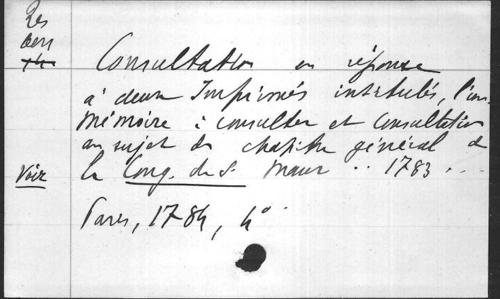 Res
Consultation en réponse
à deux Imprimés intitulés, l'un
Mémoire à consulter et Consultation
au sujet du chapitre général de
Voir la Cong. de St Maur .. 1783 ...
Paris, 1784, 4°